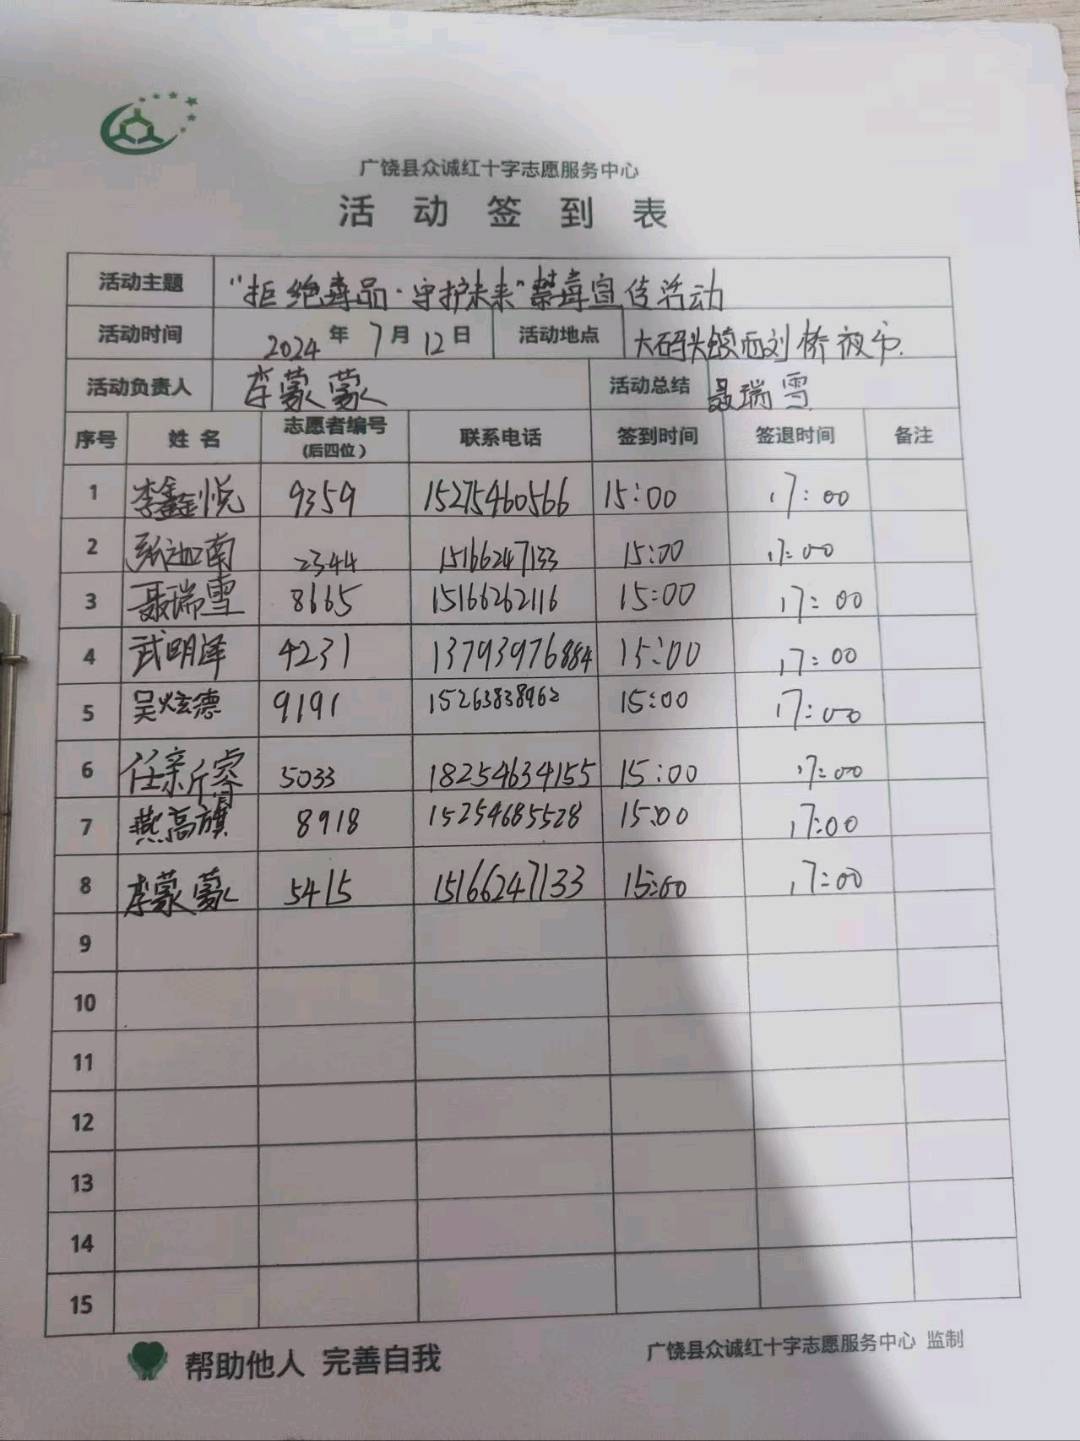 广饶县众诚红十字志愿服务中心
活动签到表
活动主题 "拒绝毒品·守护未来"禁毒宣传活动
活动时间 2024年7月12日 活动地点 大码头镇西刘桥夜市.
活动负责人 李蒙蒙 活动总结 聂瑞雪
序号 姓名 志愿者编号(后四位) 联系电话 签到时间 签退时间 备注
1 李鑫悦 9359 15275460566 15:00 17:00
2 张迦南 2344 15166247133 15:00 17:00
3 聂瑞雪 8665 15166262116 15:00 17:00
4 武明泽 4231 13793976884 15:00 17:00
5 吴炫德 9191 15263838962 15:00 17:00
6 任新睿 5033 18254634155 15:00 17:00
7 燕高旗 8918 15254685528 15:00 17:00
8 李蒙蒙 5415 15166247133 15:00 17:00
9
10
11
12
13
14
15
帮助他人 完善自我
广饶县众诚红十字志愿服务中心 监制